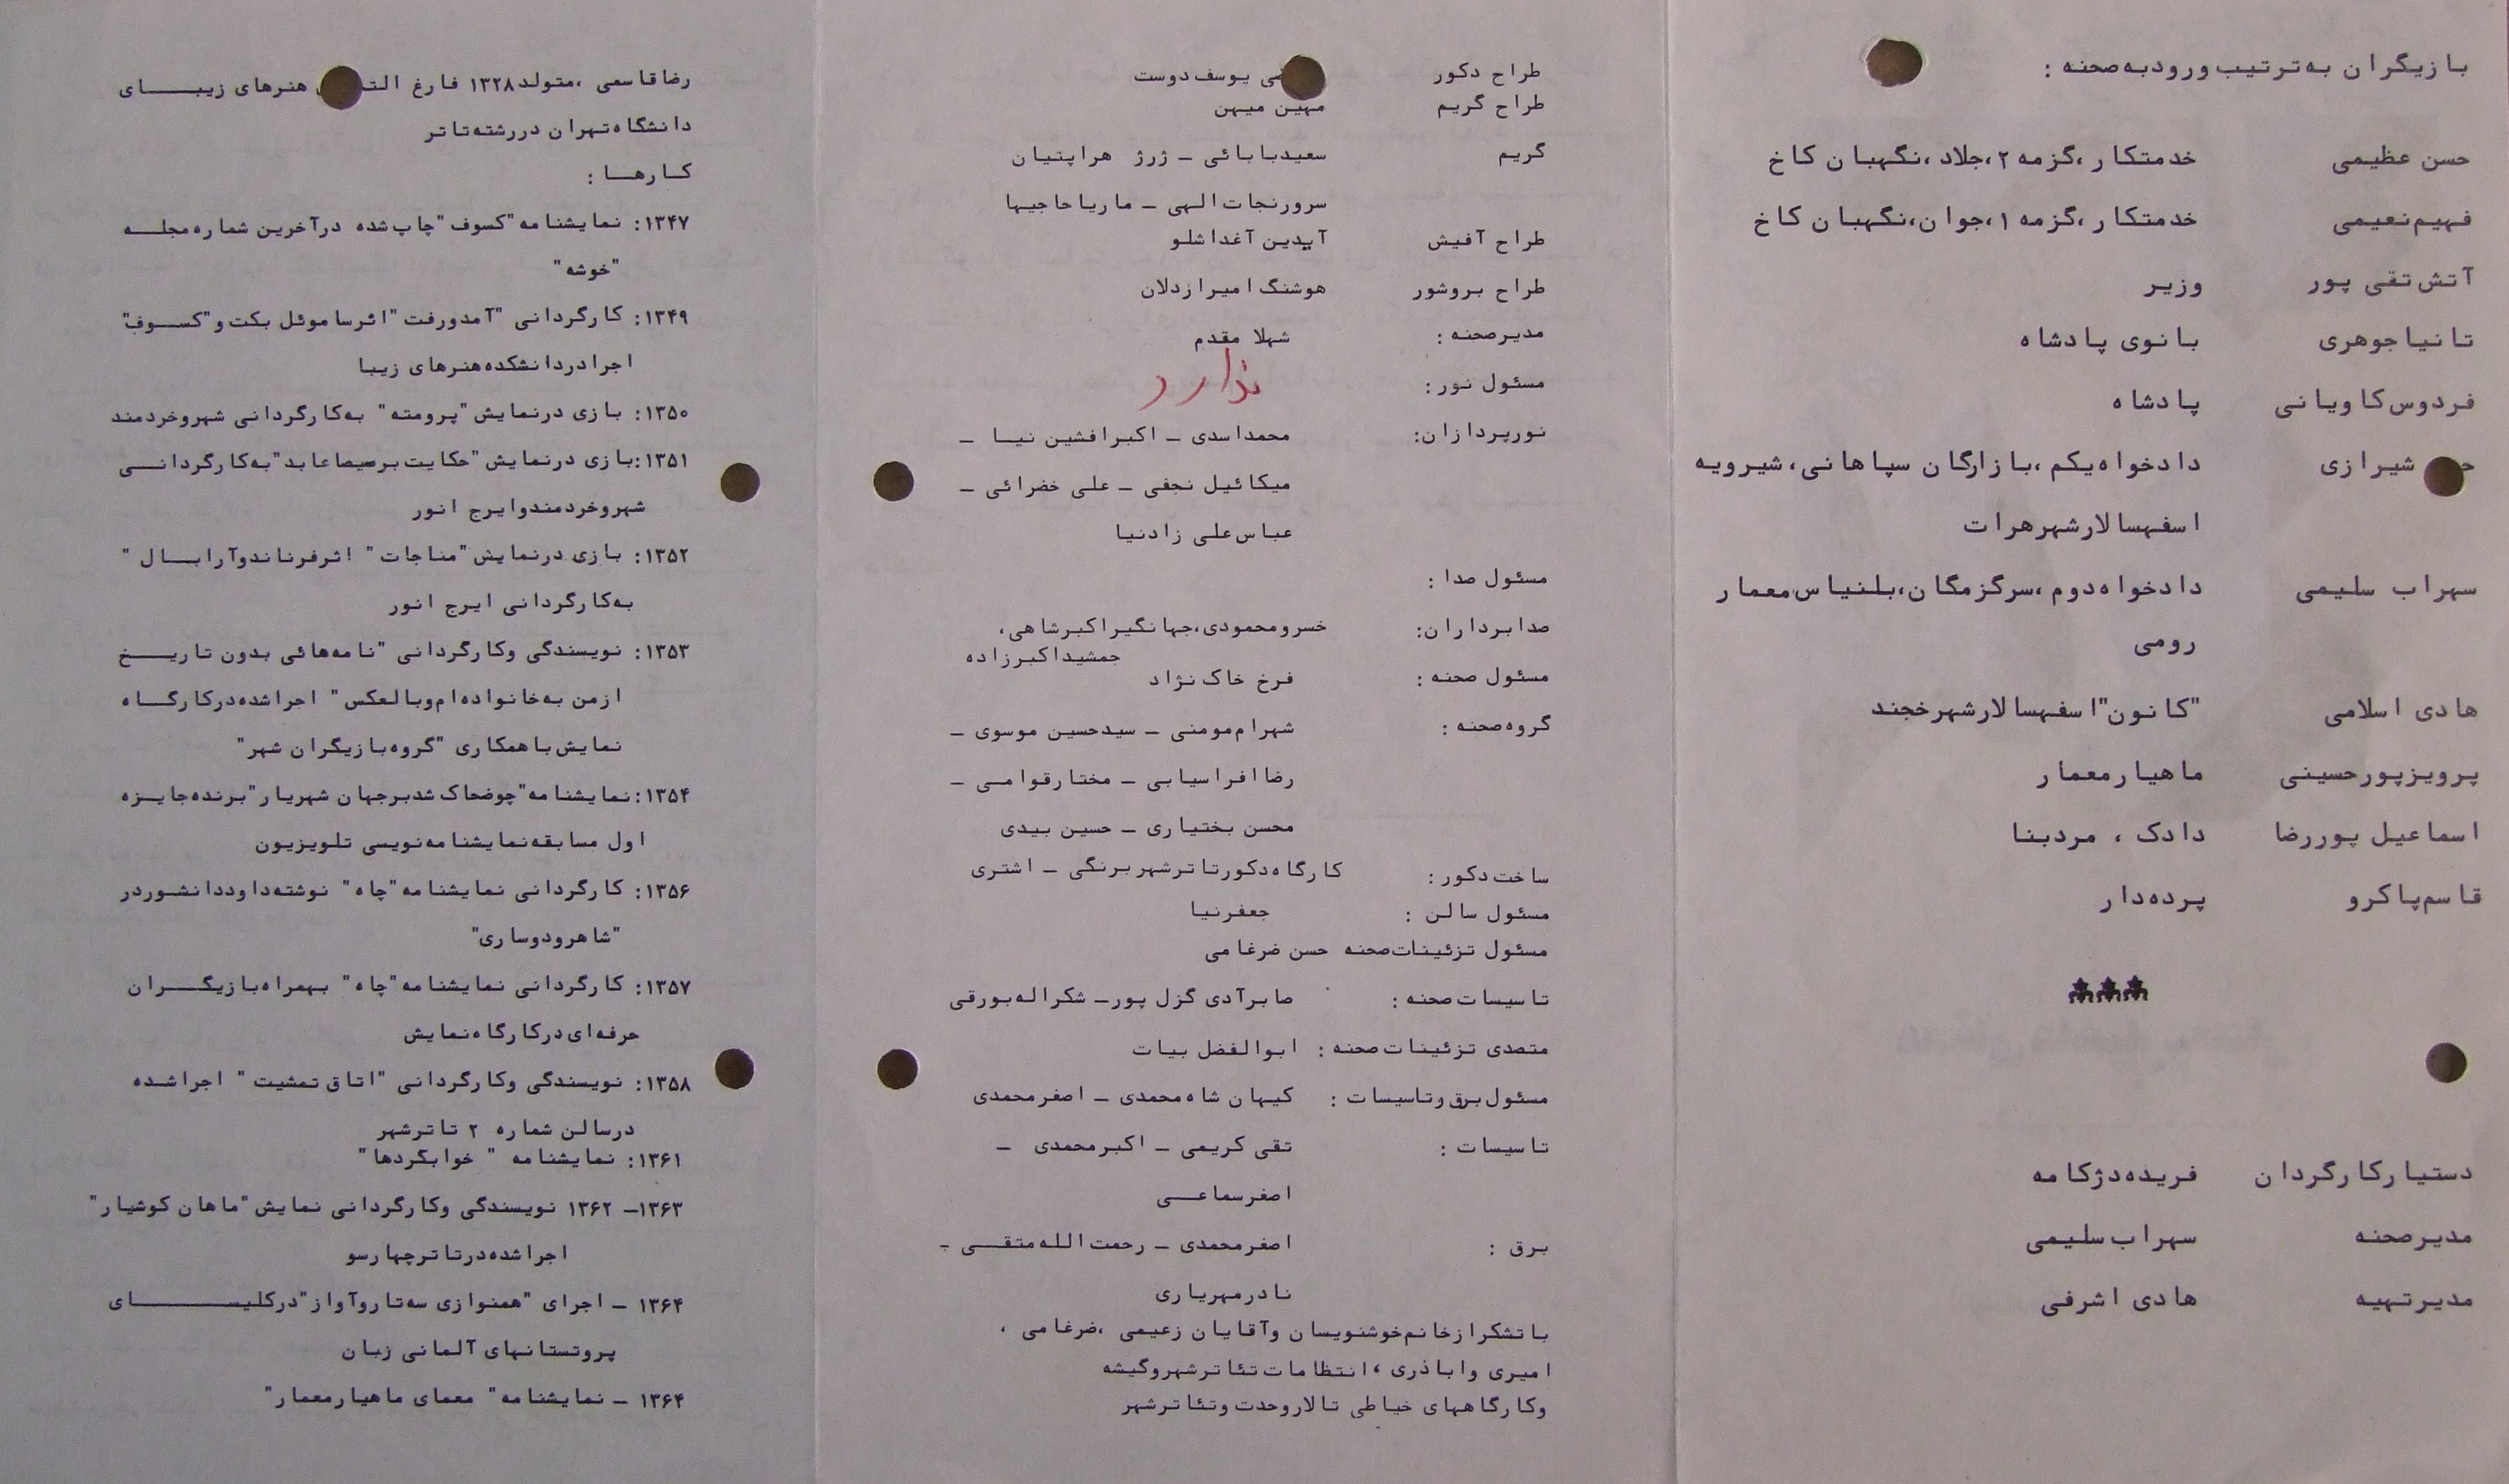 بازیگران به ترتیب ورود به صحنه :
حسن عظیمی خدمتکار ،گزمه ۲،جلاد ،نگهبان کاخ
فهیم نعیمی خدمتکار ،گزمه ۱،جوان،نگهبان کاخ
آتش تقی پور وزیر
تانیا جوهری بانوی پادشاه
فردوس کاویانی پادشاه
شیرازی دادخواه یکم ،بازارگان سپاهانی، شیرویه
اسفهسالار شهر هرات
سهراب سلیمی دادخواه دوم ،سرگزمگان،بلنیاس معمار
رومی
هادی اسلامی "کانون"اسفهسالار شهر خجند
پرویز پورحسینی ماهیار معمار
اسماعیل پوررضا دادک ، مرد بنا
قاسم پاکرو پرده دار
دستیار کارگردان فریده دژکامه
مدیر صحنه سهراب سلیمی
مدیر تهیه هادی اشرفی
طراح دکور یوسف دوست
طراح گریم مهین میهن
گریم سعید بابائی – ژرژ هراپتیان
سرور نجات الهی – ماریا حاجیها
طراح آفیش آیدین آغداشلو
طراح بروشور هوشنگ امیراردلان
مدیر صحنه : شهلا مقدم
مسئول نور : ندارد
نورپردازان: محمد اسدی – اکبر افشین نیا –
میکائیل نجفی – علی خضرائی –
عباس علی زادنیا
مسئول صدا :
صدابرداران: خسرو محمودی،جهانگیر اکبرشاهی،
جمشید اکبرزاده
مسئول صحنه : فرخ خاک نژاد
گروه صحنه : شهرام مومنی – سید حسین موسوی –
رضا افراسیابی – مختار قوامی –
محسن بختیاری – حسین بیدی
ساخت دکور : کارگاه دکور تاتر شهر برنگی – اشتری
مسئول سالن : جعفرنیا
مسئول تزئینات صحنه حسن ضرغامی
تاسیسات صحنه : صابر آدی گزل پور– شکراله بورقی
متصدی تزئینات صحنه : ابوالفضل بیات
مسئول برق و تاسیسات : کیهان شاه محمدی – اصغر محمدی
تاسیسات : تقی کریمی – اکبر محمدی –
اصغر سماعی
برق : اصغر محمدی – رحمت الله متقی –
نادر مهریاری
با تشکر از خانم خوشنویسان و آقایان زعیمی ،ضرغامی ،
امیری و اباذری ، انتظامات تئاتر شهر و گیشه
و کارگاههای خیاطی تالار وحدت و تئاتر شهر
رضا قاسمی ،متولد ۱۳۲۸ فارغ هنرهای زیبای
دانشگاه تهران در رشته تاتر
کارها :
۱۳۴۷: نمایشنامه "کسوف "چاپ شده درآخرین شماره مجله
"خوشه"
۱۳۴۹: کارگردانی "آمدورفت "اثر ساموئل بکت و"کسوف"
اجرا در دانشکده هنرهای زیبا
۱۳۵۰: بازی درنمایش "پرومته" به کارگردانی شهرو خردمند
۱۳۵۱:بازی درنمایش "حکایت برصیصا عابد"به کارگردانی
شهرو خردمند و ایرج انور
۱۳۵۲: بازی درنمایش "مناجات" اثر فرناندو آرابال "
به کارگردانی ایرج انور
۱۳۵۳: نویسندگی و کارگردانی "نامه هائی بدون تاریخ
از من به خانواده ام و بالعکس" اجرا شده در کارگاه
نمایش با همکاری "گروه بازیگران شهر"
۱۳۵۴:نمایشنامه "چو ضحاک شد بر جهان شهریار"برنده جایزه
اول مسابقه نمایشنامه نویسی تلویزیون
۱۳۵۶: کارگردانی نمایشنامه "چاه" نوشته داود دانشور در
"شاهرود و ساری"
۱۳۵۷: کارگردانی نمایشنامه "چاه" بهمراه بازیگران
حرفه ای در کارگاه نمایش
۱۳۵۸: نویسندگی و کارگردانی "اتاق تمشیت" اجرا شده
در سالن شماره ۲ تاتر شهر
۱۳۶۱: نمایشنامه " خوابگردها"
۱۳۶۳– ۱۳۶۲ نویسندگی و کارگردانی نمایش "ماهان کوشیار"
اجرا شده در تاتر چهارسو
۱۳۶۴ – اجرای "همنوازی سه تار و آواز"در کلیسای
پروتستانهای آلمانی زبان
۱۳۶۴ – نمایشنامه" معمای ماهیار معمار"